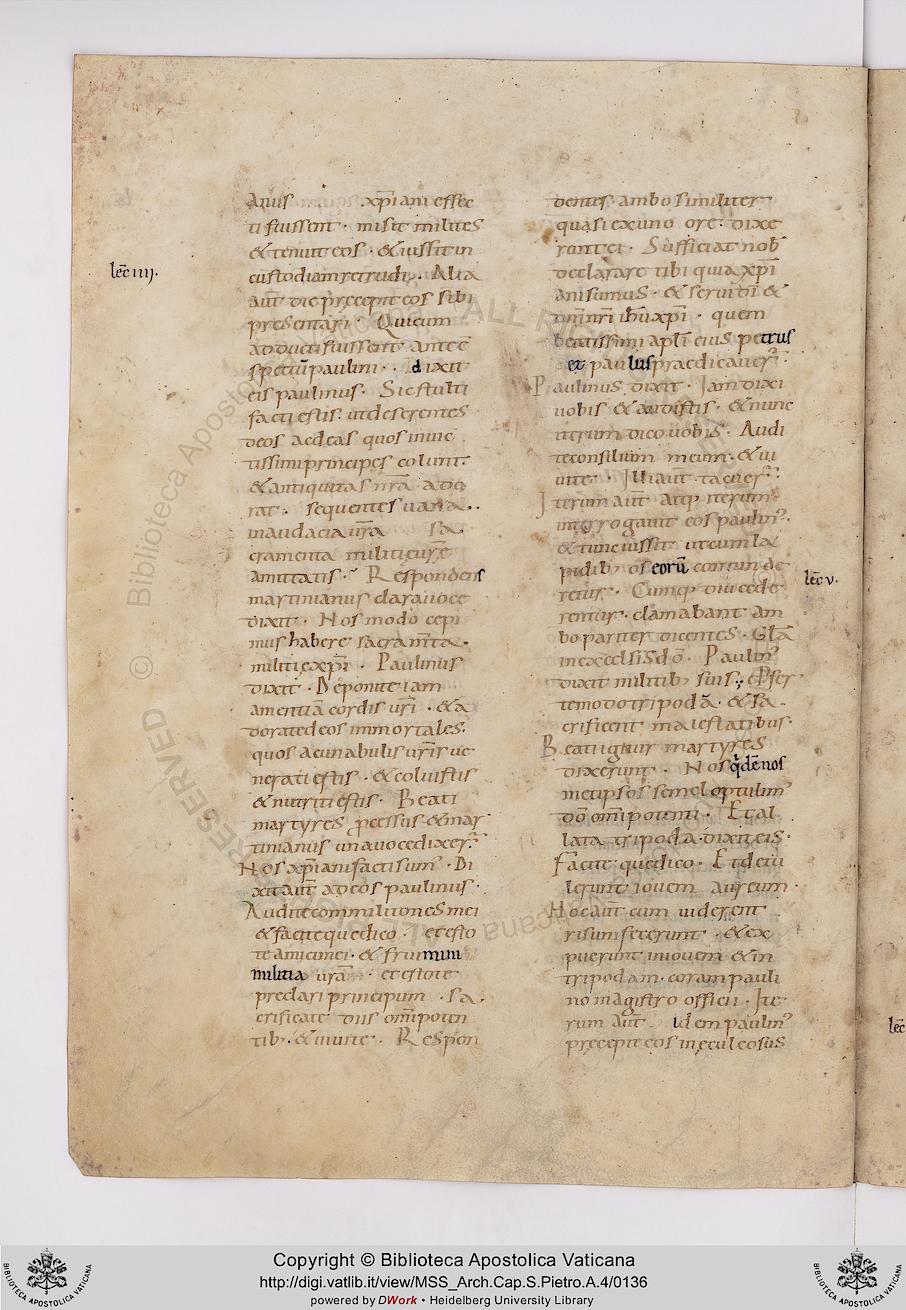 lec̄ iiij.
anus xp̄iani effec
ti fuissent · misit milites
& tenuit eos · & iussit in
custodiam retrudi · Alia
aut̄ die precepit eos sibi
presentari · Qui cum
adducti fuissent ante c̄
spectū paulini · dixit
eis paulinus · Sic stulti
facti estis · ut deserentes
deos ac deas quos inuic
tissimi principes colunt ·
& antiquitas nr̄a ado
rat · sequentes uana ·
in audacia ur̄a sa
cramenta militię ur̄ę
amittatis · Respondens
martinianus clara uoce
dixit · Nos modo cepi
mus habere sacram̄ta ·
militię xp̄i · Paulinus
dixit · Deponite iam
amentiā cordis ur̄i · & a
dorate deos immortales ·
quos a cunabulis ur̄is ue
nerati estis · & coluistis
& nutriti estis · Beati
martyres p̱cessus & mar
tinianus una uoce dixer̄
Nos xp̄iani facti sumꝰ · Di
xit aut̄ ad eos paulinus ·
Audite commilitones mei
& facite que dico · et esto
te amici mei · & frui mini
militia ur̄a · et estote
preclari principum · sa
crificate diis omīpoten
tibꝰ · & uiuite · Respon
dentes ambo similiter
quasi ex uno ore · dixe
runt ei · Sufficiat nob̄
declarare tibi quia xp̄i
ani sumus · & serui dī &
dn̄i nr̄i ihū xp̄i · quem
beatissimi apl̄i eius petrus
et paulus praedicauer̄ ·
Paulinus dixit · Iam dixi
uobis & audistis · & nunc
iterum dico uobis · Audi
te consilium meum · & ui
uite · Illi aut̄ tacuer̄ ·
Iterum aut̄ atq; iterum
interrogauit eos paulinꝰ ·
& tunc iussit ut cum la
pidibꝰ os eorū contunde
retur · Cumq; diu cede
rentur · clamabant am
bo pariter dicentes · Gl̄a
in excelsis dō · Paulinꝰ
dixit militibꝰ suis · Defer
te modo tripodā · & sa
crificent maiestatibus ·
Beati igitur martyres
dixerunt · Nos qͥdē nos
metipsos semel optulimꝰ
dō omīpotenti · Et al
lata tripoda · dixit eis ·
Facite que dico · Et detu
lerunt iouem aureum ·
Hoc aut̄ cum uiderent
risum fecerunt · & ex
puerunt in iouem & in
tripodam · coram pauli
no magistro officii · Ite
rum aut̄ idem paulinꝰ
precepit eos in eculeo sus
lec̄ v.
lec̄
Copyright © Biblioteca Apostolica Vaticana
http://digi.vatlib.it/view/MSS_Arch.Cap.S.Pietro.A.4/0136
powered by DWork • Heidelberg University Library